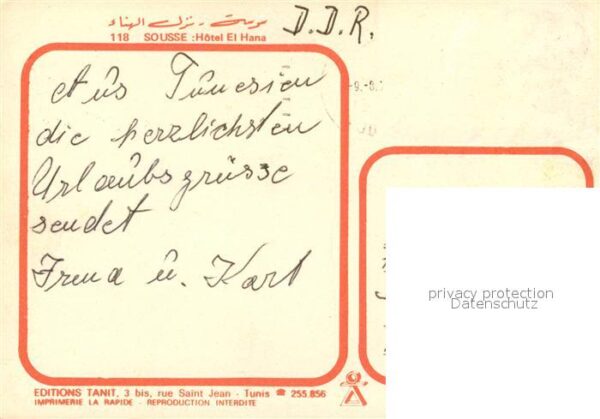 سوسة - نزل الهناء
118 SOUSSE : Hôtel El Hana
D.D.R.
Aus Tunesien
die herzlichsten
Urlaubsgrüsse
sendet
Irena u. Karl
-9.-8.
privacy protection
Datenschutz
EDITIONS TANIT, 3 bis, rue Saint Jean - Tunis ☎ 255.856
IMPRIMERIE LA RAPIDE - REPRODUCTION INTERDITE